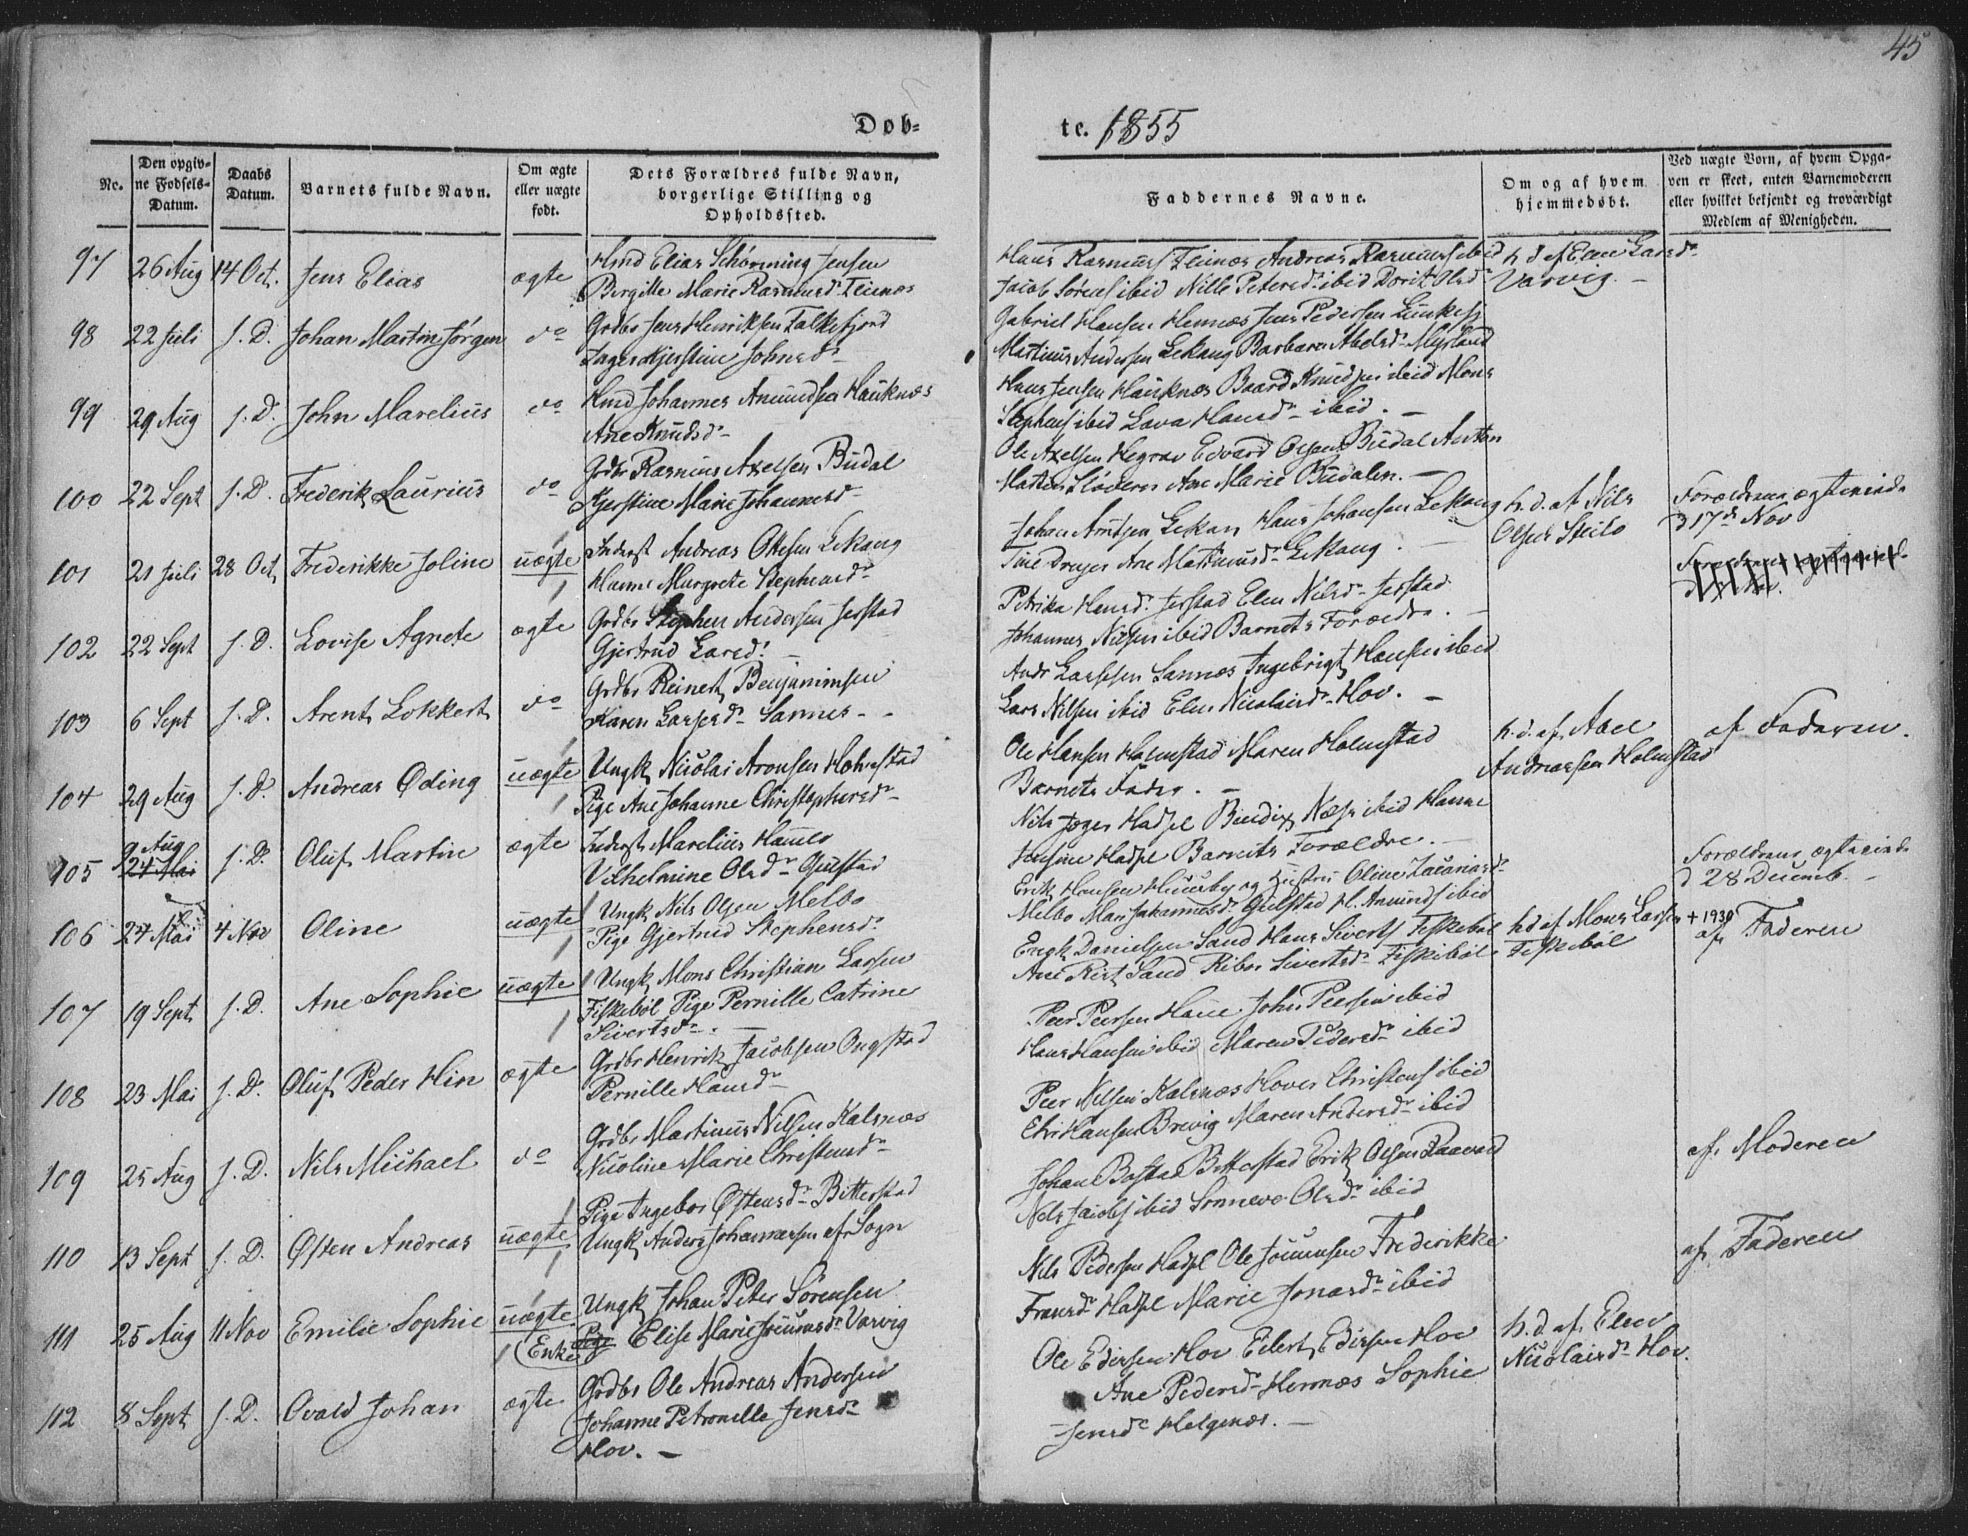 45
Døb-
te. 1855
No.
Den opgiv-
ne Fødsels-
Datum.
Daabs
Datum.
Barnets fulde Navn.
Om ægte
eller uægte
født.
Dets Forældres fulde Navn,
borgerlige Stilling og
Opholdssted.
Faddernes Navne.
Om og af hvem
hjemmedøbt.
Ved uægte Børn, af hvem Opga-
ven er skeet, enten Barnemoderen
eller hvilket bekjendt og troværdigt
Medlem af Menigheden.
97 26 Aug 14 Oct. Jens Elias ægte
Hmd Elias Schørming Jensen
Birgitte Marie Rasmusd. Teinæs
Hans Rasmuss Teinæs Andreas Rasmuss ibid
Jacob Sørens ibid Nille Petersd. ibid Dorit Olsd.
h. d af Elen Larsd.
Varvig. -
98 22 Juli J. D. Johan Martin Jørgen do
Grdbr Jens Henriksen Falkefjord
Inger Kjerstine Johnsd.
Gabriel Hansen Hennæs Jens Pedersen
Martinus Andersen Lekang Barbara Abelsd. Myrland
99 29 Aug J. D. John Marelius do
Hmd Johannes Amundsen Hauknæs
Ane Knudsd.
Hans Jensen Hauknæs Baard Knudsen ibid Mons
Stephens ibid Lava Hansd. ibid. -
100 22 Sept J. D. Frederik Laurius do
Grdbr Rasmus Axelsen Budal
Kjerstine Marie Johannesd.
Ole Axelsen Hegrav Edvard Olsen Budal Anton
Martin Ane Marie Budalen. -
101 21 Juli 28 Oct. Frederikke Joline uægte
Inderst Andreas Ottesen Lekang
Hanna Margrete Stephensd.
Johan Arntsen Lekan Hans Johansen Lekang
Tine Dreyer Ane Martinusd. Lekang. -
h. d. af Nils
Olsen Steilo
Forældrene ægteviede
d 17de Nov
102 22 Sept J. D. Lovise Agnete ægte
Grdbr Stephen Andersen Jerstad
Gjertrud Larsd. -
Petrika Hansd. Jerstad Elen Nilsd. Jerstad
Johannes Nilsen ibid Barnets Forældre. -
103 6 Sept J. D. Arent Lokkert do
Grdbr Reinert Benjaminsen
Karen Larsd. Sannes -
Andr Larssen Sannæs Ingebrigt Hansen ibid
Lars Nilsen ibid Elen Nicolaisd. Hov. -
104 29 Aug J. D. Andreas Øding uægte
Ungk Nicolai Aronsen Holmstad
Pige Ane Johanne Christophersd.
Ole Hansen Holmstad Maren Holmstad
Barnets Fader. -
h. d. af Abel
Andreassen Holmstad
af Faderen.
105 9 Aug 24 Mai J. D. Oluf Martin ægte
Inderst Marelius
Vilhelmine Olsd. Gulstad
Nils Jæger Hadsel Bendix ibid Hanna
Hadsel Barnets Forældre. -
106 24 Mai 4 Nov Oline uægte
Ungk Nils Olsen Melbo
Pige Gjertrud Stephensd.
Erik Hansen og Hustru Oline Zacariasd.
Melbo Johannesd. Gulstad Amunds ibid
Forældrene ægteviede
d 28 Decemb.
107 19 Sept. J. D. Ane Sophie uægte
Ungk Mons Christian Larsen
Fiskebøl Pige Pernille Catrine
Sivertsd. -
Danielsen Sand Hans Siverts Fiskebøl
Ane Sand Siverts d. Fiskebøl
h. d af Mons Larsen
Fiskebøl
+ 1930
af Faderen
108 23 Mai J. D. Oluf Peder Hin ægte
Grdbr Henrik Jacobsen Ongstad
Pernille Hansd.
Peer Peersen Haue John Peersen ibid
Hans Hansen ibid Maren Pedersd. ibid
109 25 Aug J. D. Nils Michael do
Grdbr Martinus Nilsen Kalsnæs
Nicoline Marie Christensd.
Peer Nilsen Kalsnæs Christens ibid
Hansen Brevig Maren Andersd. ibid
110 13 Sept J. D. Østen Andreas uægte
Pige Ingebor Østensd. Bitterstad
Ungk Anders Johannessen af Sogn
Johan Bitterstad Erik Olsen
Nels Jacobs ibid Sonneve Olsd. ibid
af Moderen
111 25 Aug 11 Nov Emilie Sophie uægte
Ungk Johan Peter Sørensen
(Enke Pige Elise Marie Varvig
Nils Pedersen Hadsel Ole Frederikke
Fransd. Hadsel Marie Jonasd. ibid
af Faderen
112 8 Sept J. D. Ovald Johan ægte
Grdbr Ole Andreas Andersen
Johanne Petronelle Jensd.
Hov. -
Ole Edissen Hov Eilert Edissen Hov
Ane Pedersd. Hennæs Sophie
Jensd. Helgenæs. -
h. d. af Elen
Nicolaisd. Hov.